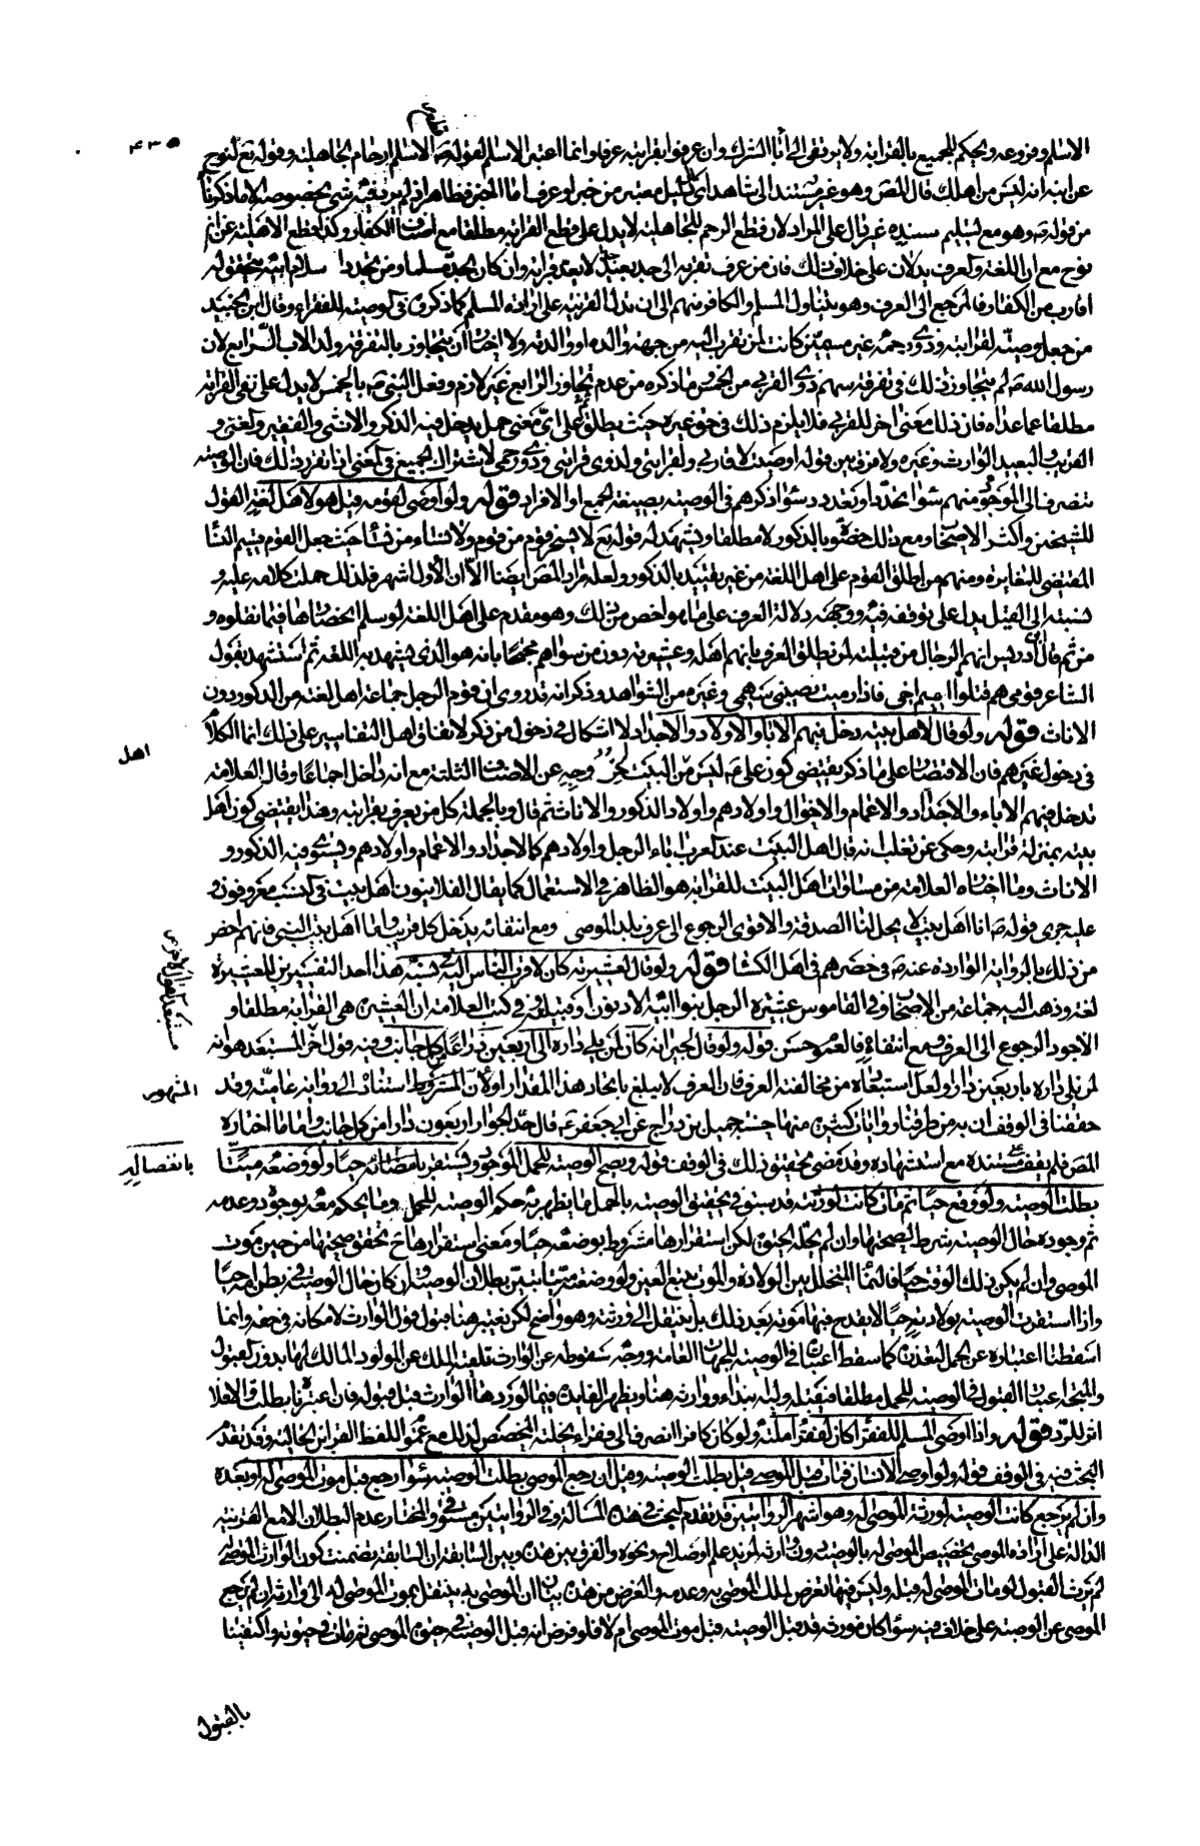 ٤٣٥
الاسلام وفروعه ويحكم للجميع بالقرابة ولا يرتقى الى آباء الشرك وان عرفوا بقرابته عرفا وانما اعتبر الاسلام لقوله ص الاسلام ارحام الجاهلية وقوله تع لنوح
عن ابنه انه ليس من اهلك قال المص وهو غير مستند الى شاهد اى دليل معتبر من خبر او عرف اما الخبر فظاهر اذ لم يرد فيه شئ بخصوصه الا ما ذكرناه
من قوله ص وهو مع تسليم سنده غير دال على المراد لان قطع الرحم للجاهلية لا يدل على قطع القرابة مطلقا مع اصناف الكفار وكذا قطع الاهلية عن ابن
نوح مع ان اللغة والعرف يدلان على خلاف ذلك فان من عرف تقربه الى جد بعيد لا يعد قرابة وان كان الجد مسلما ومن تجدد اسلام ابيه يتحقق له
اقارب من الكفار فالمرجع الى العرف وهو يتناول المسلم والكافر منهم الى ان تدل القرينة على ارادة المسلم كما ذكر في الوصية للفقراء وقال ابن الجنيد
من جعل وصيته لقرابته وذوى رحمه غير مسمين كانت لمن تقرب اليه من جهة والده او والدته ولا اختار ان يتجاوز بالتفرقة ولد الاب الرابع لان
رسول الله ص لم يتجاوز ذلك في تفرقة سهم ذوى القربى من الخمس وما ذكره من عدم تجاوز الرابع غير لازم وفعل النبى ص بالخمس لا يدل على نفى القرابة
مطلقا عما عداه فان ذلك معنى اخر للقربى فلا يلزم ذلك في حق غيره حيث يطلق على اى معنى حمل يدخل فيه الذكر والانثى والفقير والغنى و
القريب والبعيد الوارث وغيره ولا فرق بين قوله اوصيت لاقاربى ولقرابتى ولذوى قرابتى وذوى رحمى لاشتراك الجميع في المعنى اذا تقرر ذلك فان الوصية
تنصرف الى الموجود منهم سواء اتحد او تعدد وسواء ذكرهم في الوصية بصيغة الجمع او الافراد قوله ولو اوصى لقومه قيل هو لاهل لغته القول
للشيخين واكثر الاصحاب ومع ذلك خصوه بالذكور لا مطلقا ويشهد له قوله تع لا يسخر قوم من قوم ولا نساء من نساء حيث جعل القوم قسيم النساء
المقتضى للمغايرة ومنهم من اطلق القوم على اهل اللغة من غير تقييد بالذكور ولعله مراد المص ايضا الا ان الاول اشهر فلذلك حملنا كلامه عليه و
نسبته الى القيل يدل على توقفه فيه ووجهه دلالة العرف على ما هو اخص من ذلك وهو مقدم على اهل اللغة لو سلم انحصارها فيما نقلوه و
من ثم قال ابن ادريس انهم الرجال من قبيلته ممن يطلق العرف بانهم اهله وعشيرته دون من سواهم محتجا بانه هو الذى يشهد به اللغة ثم استشهد بقول
الشاعر قومى هم قتلوا اميم اخى فاذا رميت يصيبنى سهمى وغيره من الشواهد وذكر انه قد روى ان قوم الرجل جماعة اهل لغته من الذكور دون
الاناث قوله ولو قال لاهل بيته دخل فيهم الاباء والاولاد والاجداد لا اشكال في دخول من ذكر لاتفاق اهل التفاسير على ذلك انما الكلام
في دخول غيرهم فان الاقتصار على ما ذكر يقتضى كون على ع ليس من البيت لخروجه عن الاصناف الثلثة مع انه داخل اجماعا وقال العلامة
يدخل فيهم الاباء والاجداد والاعمام والاخوال واولادهم واولاد الذكور والاناث ثم قال وبالجملة كل من يعرف بقرابته وهذا يقتضى كون اهل
بيته بمنزلة قرابته وحكى عن ثعلب انه قال اهل البيت عند العرب اباء الرجل واولادهم كالاجداد والاعمام واولادهم ويستوى فيه الذكور و
الاناث وما اختاره العلامة من مساواة اهل البيت للقرابة هو الظاهر في الاستعمال كما يقال الفلانيون اهل بيت في النسب معروفون و
عليه جرى قوله ص انا اهل بيت لا يحل لنا الصدقة والاقوى الرجوع الى عرف بلد الموصى ومع انتفائه يدخل كل قريب واما اهل بيت النبى فانهم اخص
من ذلك بالرواية الواردة عنه ص في حصرهم في اهل الكساء قوله ولو قال لعشيرته كان لاقرب الناس اليه في نسبه هذا احد التفسيرين للعشيرة
لغة وذهب اليه جماعة من الاصحاب وفي القاموس عشيرة الرجل بنو ابيه الادنون او قبيلته وفي كتب العلامة ان العشيرة هى القرابة مطلقا و
الاجود الرجوع الى العرف ومع انتفائه فالعموم حسن قوله ولو قال لجيرانه كان لمن يلى داره الى اربعين ذراعا من كل جانب وفيه قول اخر مستبعد هو انه
لمن يلى داره باربعين دارا ولعل استبعاده من مخالفته العرف فان العرف لا يبلغ بالجار هذا المقدار او لان المشهور استناده الى رواية عامية وقد
حققنا في الوقف ان به من طرقنا روايات كثيرة منها حسنة جميل بن دراج عن ابى جعفر ع قال حد الجوار اربعون دارا من كل جانب واما ما اختاره
المص فلم نقف على مستنده مع اشتهاره وقد مضى تحقيق ذلك في الوقف قوله ويصح الوصية للحمل الموجود ويستقر بانفصاله حيا ولو وضعته ميتا
بطلت الوصية ولو وقع حيا ثم مات كانت لورثته قد سبق في تحقيق الوصية بالحمل ما يظهر به حكم الوصية للحمل وما يحكم معه بوجوده وعدمه
ثم وجوده حال الوصية شرط لصحتها وان لم تحله الحيوة لكن استقرارها مشروط بوضعه حيا ومعنى استقرارها ح تحقق صحتها من حين موت
الموصى وان لم يكن ذلك الوقت حيا فالنماء المتخلل بين الولادة والموت يتبع العين ولو وضعته ميتا تبين بطلان الوصية وان كان حال الوصية في بطن امه حيا
واذا استقرت الوصية بولادته حيا لا يقدح فيها موته بعد ذلك بل ينتقل الى ورثته وهو واضح لكن يعتبر هنا قبول الوارث لامكانه في حقه وانما
اسقطنا اعتباره عن الحمل لتعذره كما سقط اعتباره في الوصية للجهات العامة ووجه سقوطه عن الوارث تلقيه الملك عن المولود المالك لها بدون القبول
والمتجه اعتبار القبول في الوصية للحمل مطلقا فيقبله وليه ابتداء ووارثه هنا وتظهر الفايدة فيما لو ردها الوارث قبل قبوله فان اعتبرناه بطلت والا فلا
اثر للرد قوله واذا اوصى المسلم للفقراء كان لفقراء ملته ولو كان كافرا انصرف الى فقراء نحلته المخصص لذلك مع عموم اللفظ القرائن الحالية وقد تقدم
البحث فيه في الوقف قوله ولو اوصى لانسان فمات قبل الموصى قيل بطلت الوصية وقيل ان رجع الموصى بطلت الوصية سواء رجع قبل موت الموصى له او بعده
وان لم يرجع كانت الوصية لورثة الموصى له وهو اشهر الروايتين قد تقدم البحث في هذه المسألة وفي الروايتين مستوفى والمختار عدم البطلان الا مع القرينة
الدالة على ارادة الموصى تخصيص الموصى له بالوصية دون وارثه لمزيد علم او صلاح ونحوه والفرق بين هذه وبين السابقة ان السابقة تضمنت كون الوارث للموصى له
يرث القبول لو مات الموصى له قبله وليس فيها تعرض لملك الموصى به وعدمه والغرض من هذه بيان ان الموصى به ينتقل بموت الموصى له الى وارثه ان لم يرجع
الموصى عن الوصية على خلاف فيه سواء كان مورثه قد قبل الوصية قبل موت الموصى ام لا فلو فرض انه قبل الوصية في حيوة الموصى ثم مات في حيوته واكتفينا
اهل
المشهور
بانفصاله
بالقبول